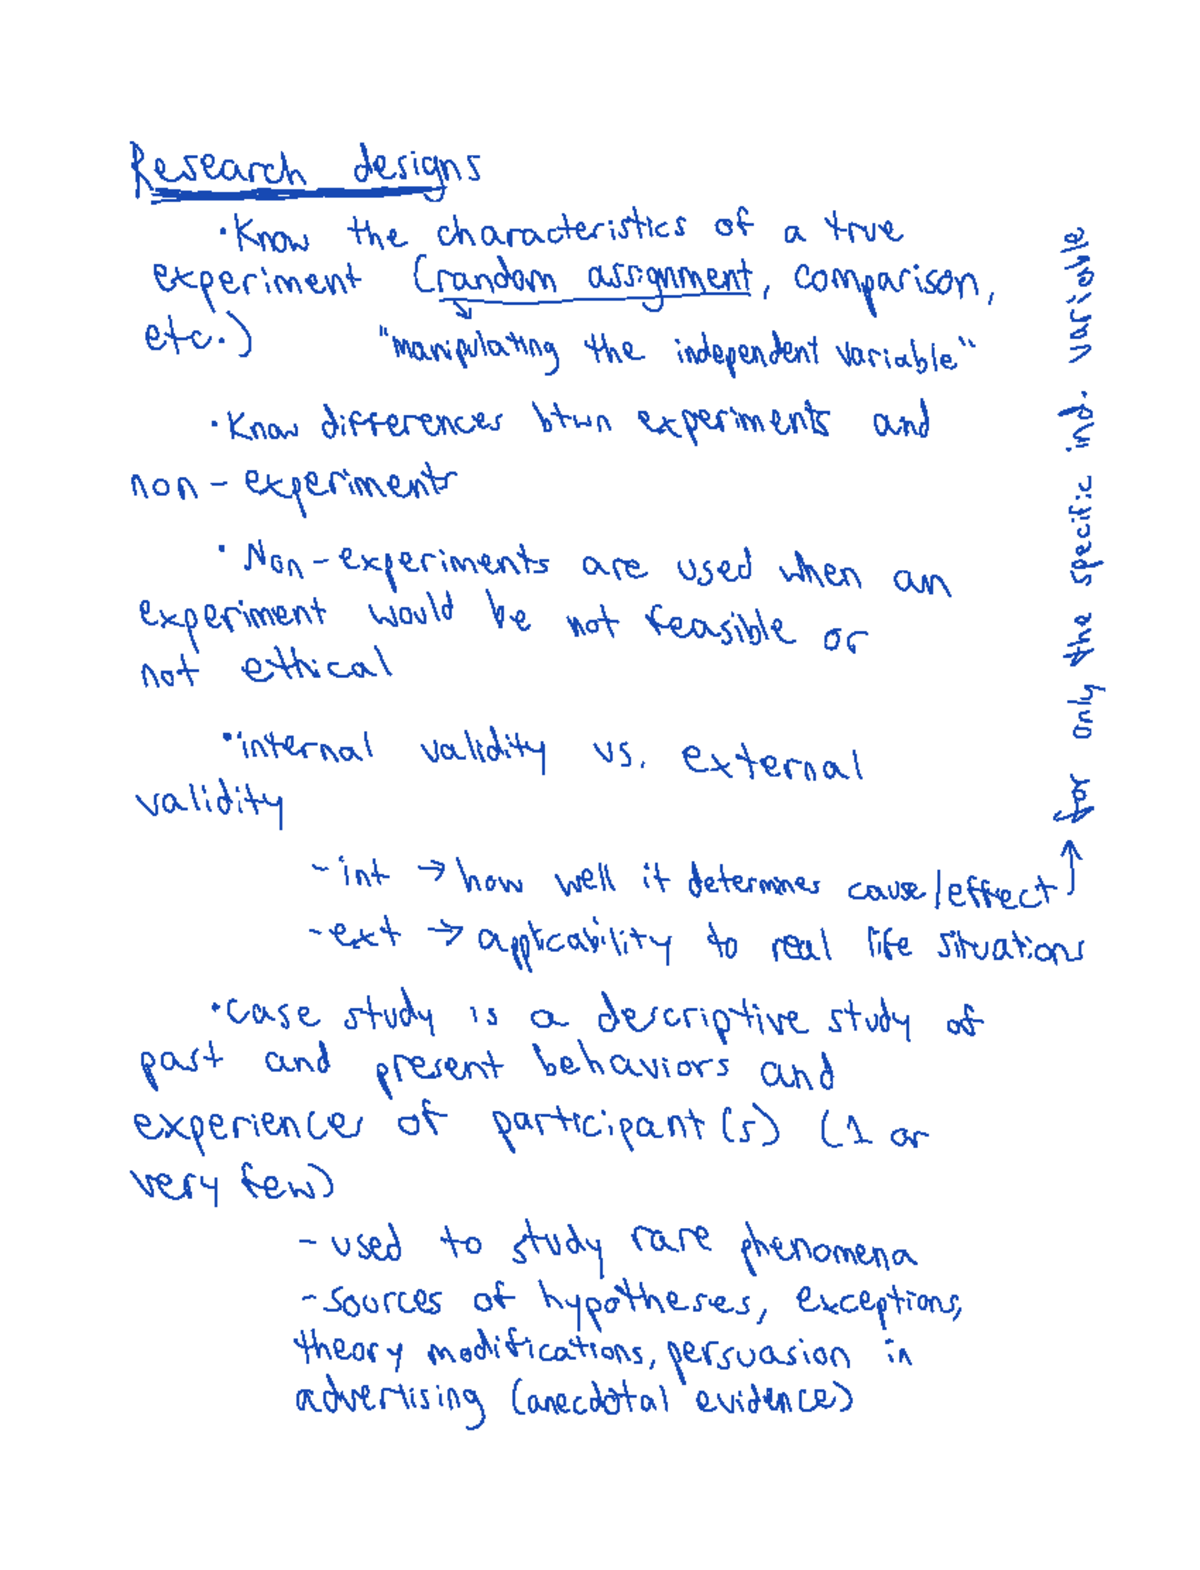 Research designs
• Know the characteristics of a true
experiment (random assignment, comparison,
etc.)
"manipulating the independent variable"
• Know differences btwn experiments and
non - experiments
• Non - experiments are used when an
experiment would be not feasible or
not ethical
• internal validity vs. external
validity
- int → how well it determines cause/effect
→ for only the specific ind. variable
- ext → applicability to real life situations
• case study is a descriptive study of
past and present behaviors and
experiences of participant(s) (1 or
very few)
- used to study rare phenomena
- sources of hypotheses, exceptions,
theory modifications, persuasion in
advertising (anecdotal evidence)